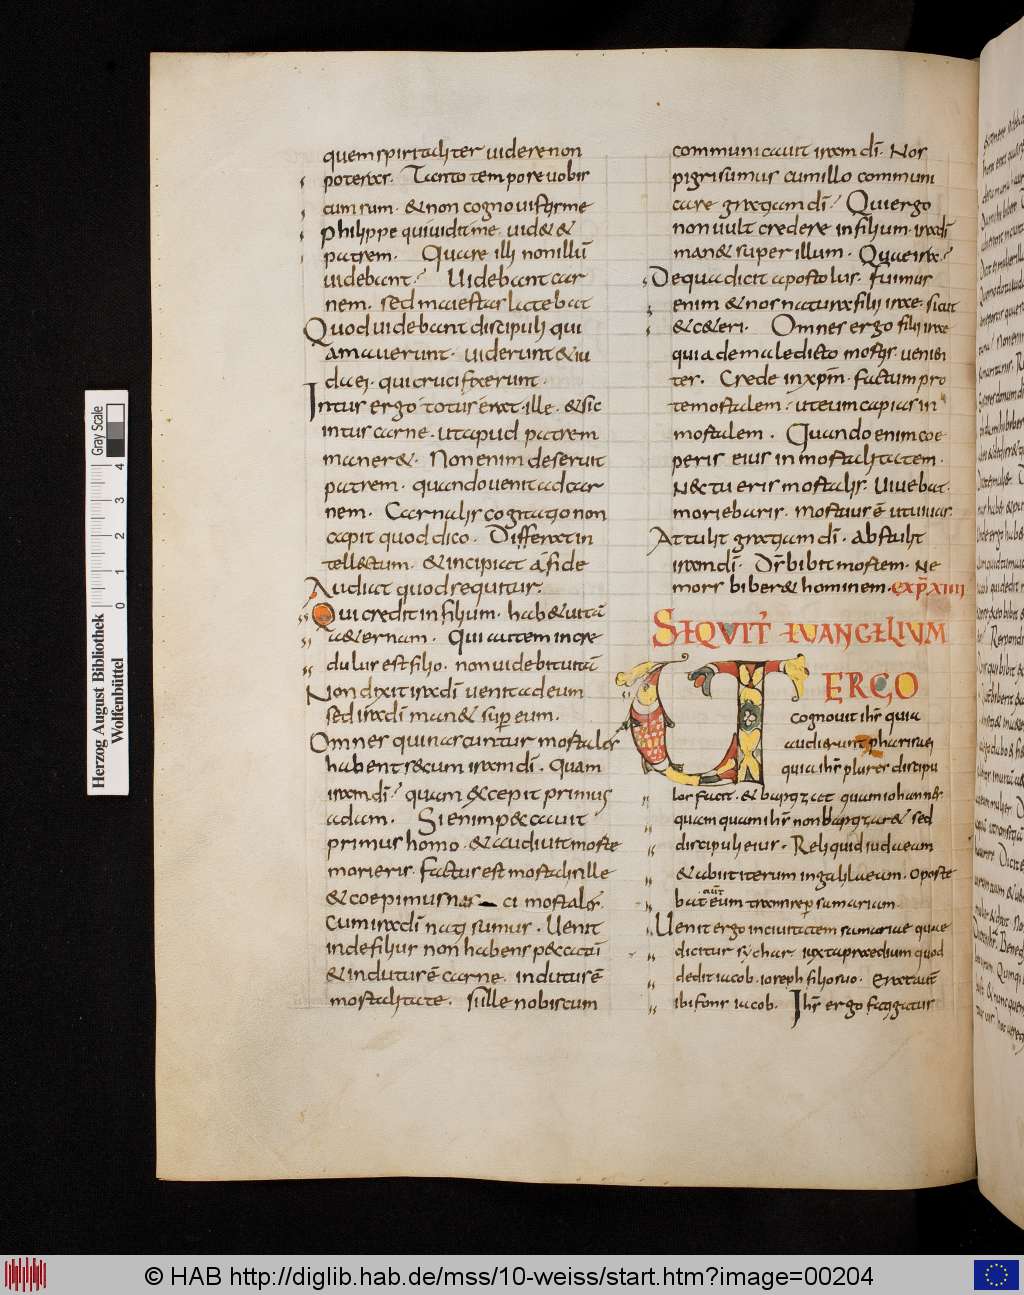 quem spiritaliter videre non
poteras. Tanto tempore vobis
cum sum. & non cognovistis me
philippe qui vidit me. vid& &
patrem. Quare illi non illū
videbant? Videbant car
nem. sed maiestas latebat
Quod videbant discipuli qui
amaverunt. viderunt & iu
daei. qui crucifixerunt.
Intus ergo totus erat ille. & sic
intus carne. ut apud patrem
maner&. Non enim deseruit
patrem. quando venit ad car
nem. Carnalis cogitatio non
capit quod dico. Differat in
tell&tum. & incipiat a fide
Audiat quod sequitur.
Qui credit in filium. hab& vitā
a&ernam. Qui autem incre
dulus est filio. non videbit vitā
Non dixit ira dī venit ad eum
sed ira dī man& sup eum.
Omnes qui nascuntur mortales
habent secum iram dī. Quam
iram dī? quam excepit primus
adam. Si enim peccavit
primus homo. & audivit morte
morieris. factus est mortalis ille
& coepimus nas ci mortales.
Cum ira dī nati sumus. Venit
inde filius non habens peccatū
& indutus ē carne. indutus ē
mortalitate. Si ille nobiscum
communicavit iram dī. Nos
pigri sumus cum illo communi
care gratiam dī? Qui ergo
non vult credere in filium. ira dī
man& super illum. Quae ira?
De qua dicit apostolus. fuimus
enim & nos natura filii irae. sicut
& c&eri. Omnes ergo filii irae
quia de maledicto mortis. venien
ter. Crede in xpm̄. factum pro
te mortalem. ut eum capias in
mortalem. Quando enim coe
peris eius inmortalitatem.
N& tu eris mortalis. Vivebat.
moriebaris. mortuus ē ut vivas.
Attulit gratiam dī. abstulit
iram dī. Dš bibit mortem. Ne
mors biber& hominem. EXP̄ XIIII
SEQVIT̄ EVANGELIVM
UT ERGO
cognovit ihs̄ quia
audierunt pharisaei
quia ihs̄ plures discipu
los facit. & baptizat quam iohannes
quamquam ihs̄ non baptizar& sed
discipuli eius. Reliquid iudaeam
& abiit iterum in galilaeam. oporte
bat aut̄ eum transire p samariam.
Venit ergo in civitatem samariae quae
dicitur sychar. iuxta praedium quod
dedit iacob. ioseph filio suo. Erat autē
ibi fons iacob. Ihs̄ ergo fatigatus
Herzog August Bibliothek
Wolfenbüttel
0 1 2 3 4
Gray Scale
© HAB http://diglib.hab.de/mss/10-weiss/start.htm?image=00204